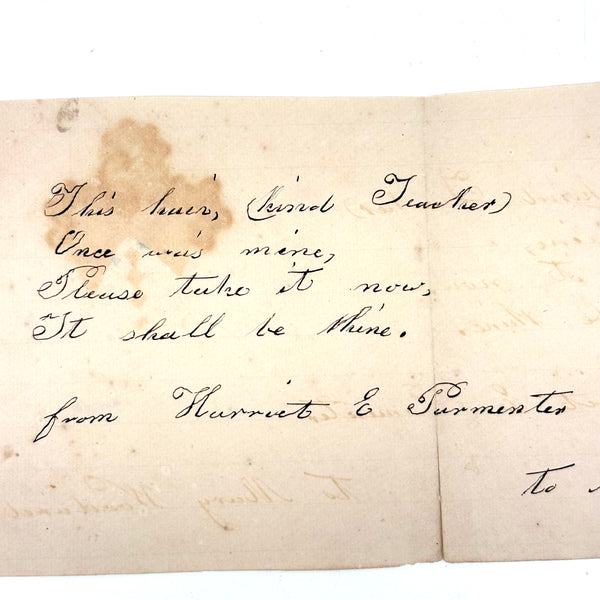 This hair, (kind Teacher)
Once was mine,
Please take it now,
It shall be thine.
from Harriet E Parmenter
to
to Mary